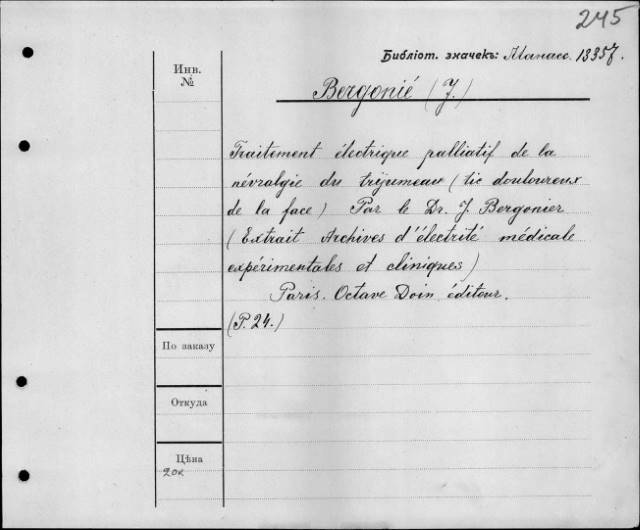 245
Библіот. значекъ: Манасс. 13357.
Инв.
№
Bergonié (J.)
Traitement électrique palliatif de la
névralgie du trijumeau (tic douloureux
de la face) Par le Dr. J. Bergonier
(Extrait Archives d'électrité médicale
expérimentales et cliniques)
Paris. Octave Doin éditour.
(P. 24.)
По заказу
Откуда
Цѣна
20к